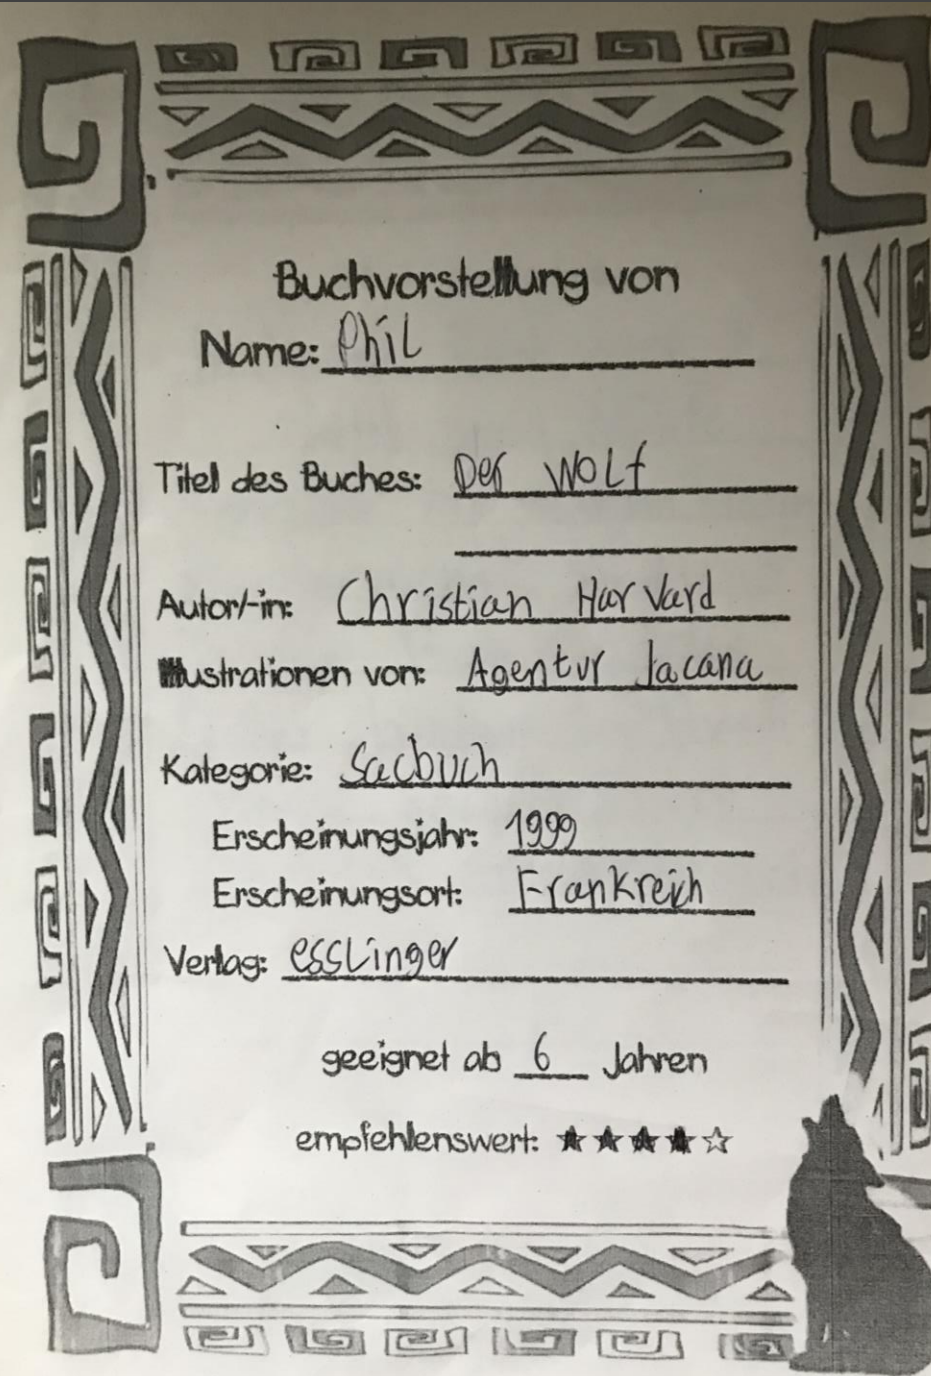 Buchvorstellung von
Name: Phil
Titel des Buches: Der Wolf
Autor/-in: Christian Harvard
Illustrationen von: Agentur Jacana
Kategorie: Sacbuch
Erscheinungsjahr: 1999
Erscheinungsort: Frankreich
Verlag: esslinger
geeignet ab 6 Jahren
empfehlenswert: ★★★★☆